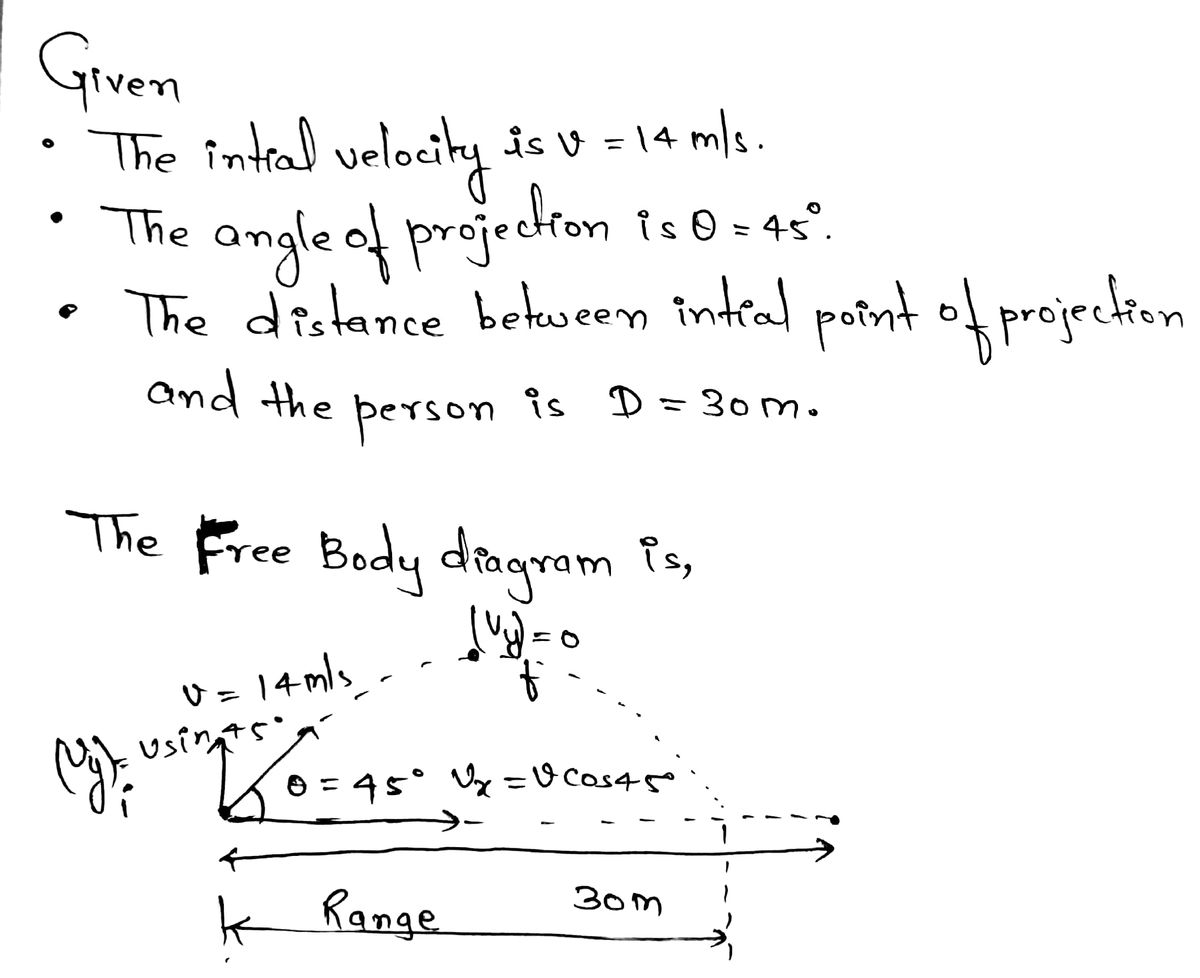 Given
• The intial velocity is v = 14 m/s.
• The angle of projection is θ = 45°.
• The distance between intial point of projection
and the person is D = 30 m.
The Free Body diagram is,
(Vy)f = 0
v = 14 m/s
(Vy)i = v sin 45°
θ = 45° Vx = v cos 45°
30 m
Range